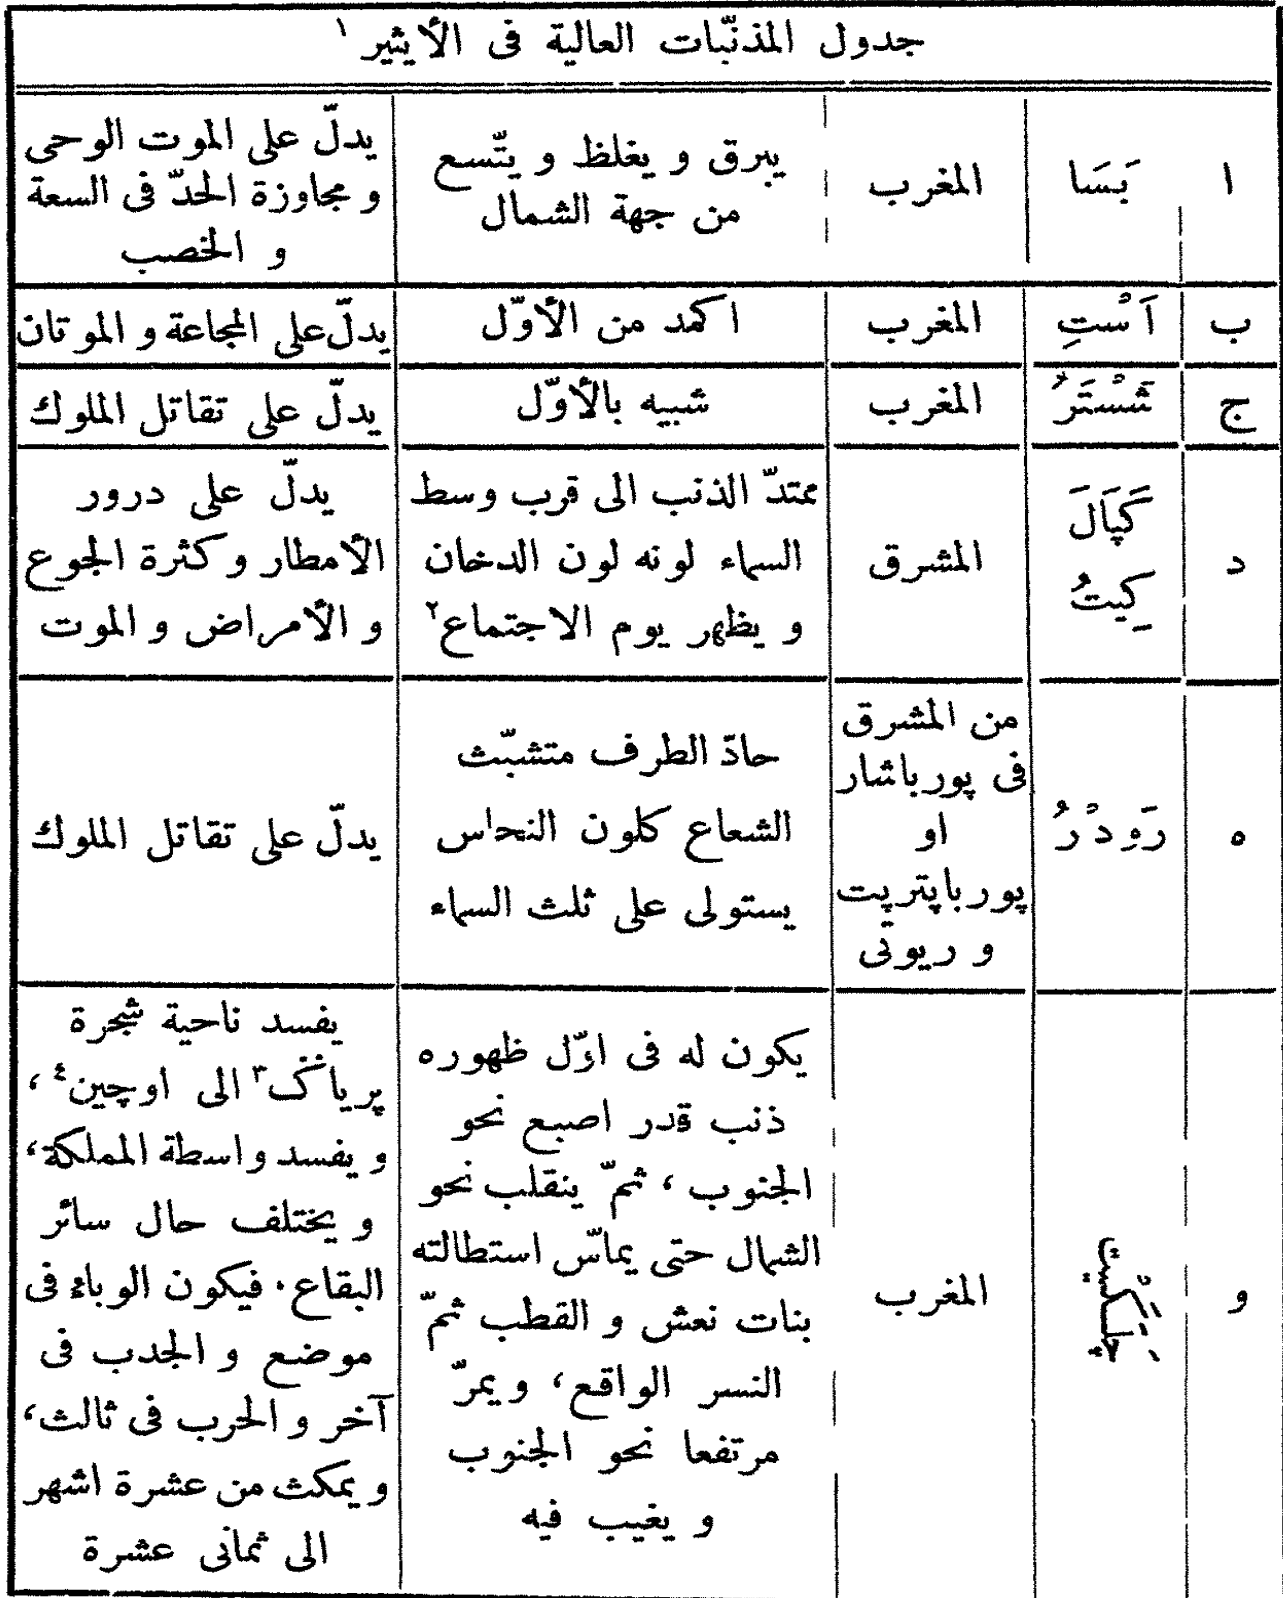 جدول المذنّبات العالية فى الأيثير ١
ا
بَسَا
المغرب
يبرق و يغلظ و يتّسع
من جهة الشمال
يدلّ على الموت الوحى
و مجاوزة الحدّ فى السعة
و الخصب
ب
اَسْتِ
المغرب
اكمد من الأوّل
يدلّ على المجاعة و الموتان
ج
شَسْتَرُ
المغرب
شبيه بالأوّل
يدلّ على تقاتل الملوك
د
كَپَالَ
كِيتُ
المشرق
ممتدّ الذنب الى قرب وسط
السماء لونه لون الدخان
و يظهر يوم الاجتماع ٢
يدلّ على درور
الأمطار و كثرة الجوع
و الأمراض و الموت
ه
رَوِدْرُ
من المشرق
فى پورباشار
او
پورباپتريت
و ريوتى
حادّ الطرف متشبّث
الشعاع كلون النحاس
يستولى على ثلث السماء
يدلّ على تقاتل الملوك
و
چَلَكَيت
المغرب
يكون له فى اوّل ظهوره
ذنب قدر اصبع نحو
الجنوب ، ثمّ ينقلب نحو
الشمال حتى يماسّ استطالته
بنات نعش و القطب ثمّ
النسر الواقع، و يمرّ
مرتفعا نحو الجنوب
و يغيب فيه
يفسد ناحية شجرة
پرياگ ٣ الى اوچين ٤ ،
و يفسد واسطة المملكة،
و يختلف حال سائر
البقاع. فيكون الوباء فى
موضع و الجدب فى
آخر و الحرب فى ثالث،
و يمكث من عشرة اشهر
الى ثمانى عشرة